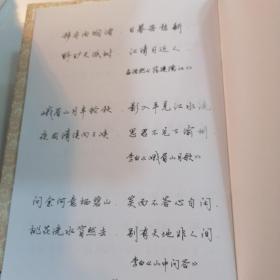 移舟泊烟渚 日暮客愁新
野旷天低树 江清月近人
孟浩然《宿建德江》
峨眉山月半轮秋 影入平羌江水流
夜发清溪向三峡 思君不见下渝州
李白《峨眉山月歌》
问余何意栖碧山 笑而不答心自闲
桃花流水窅然去 别有天地非人间
李白《山中问答》